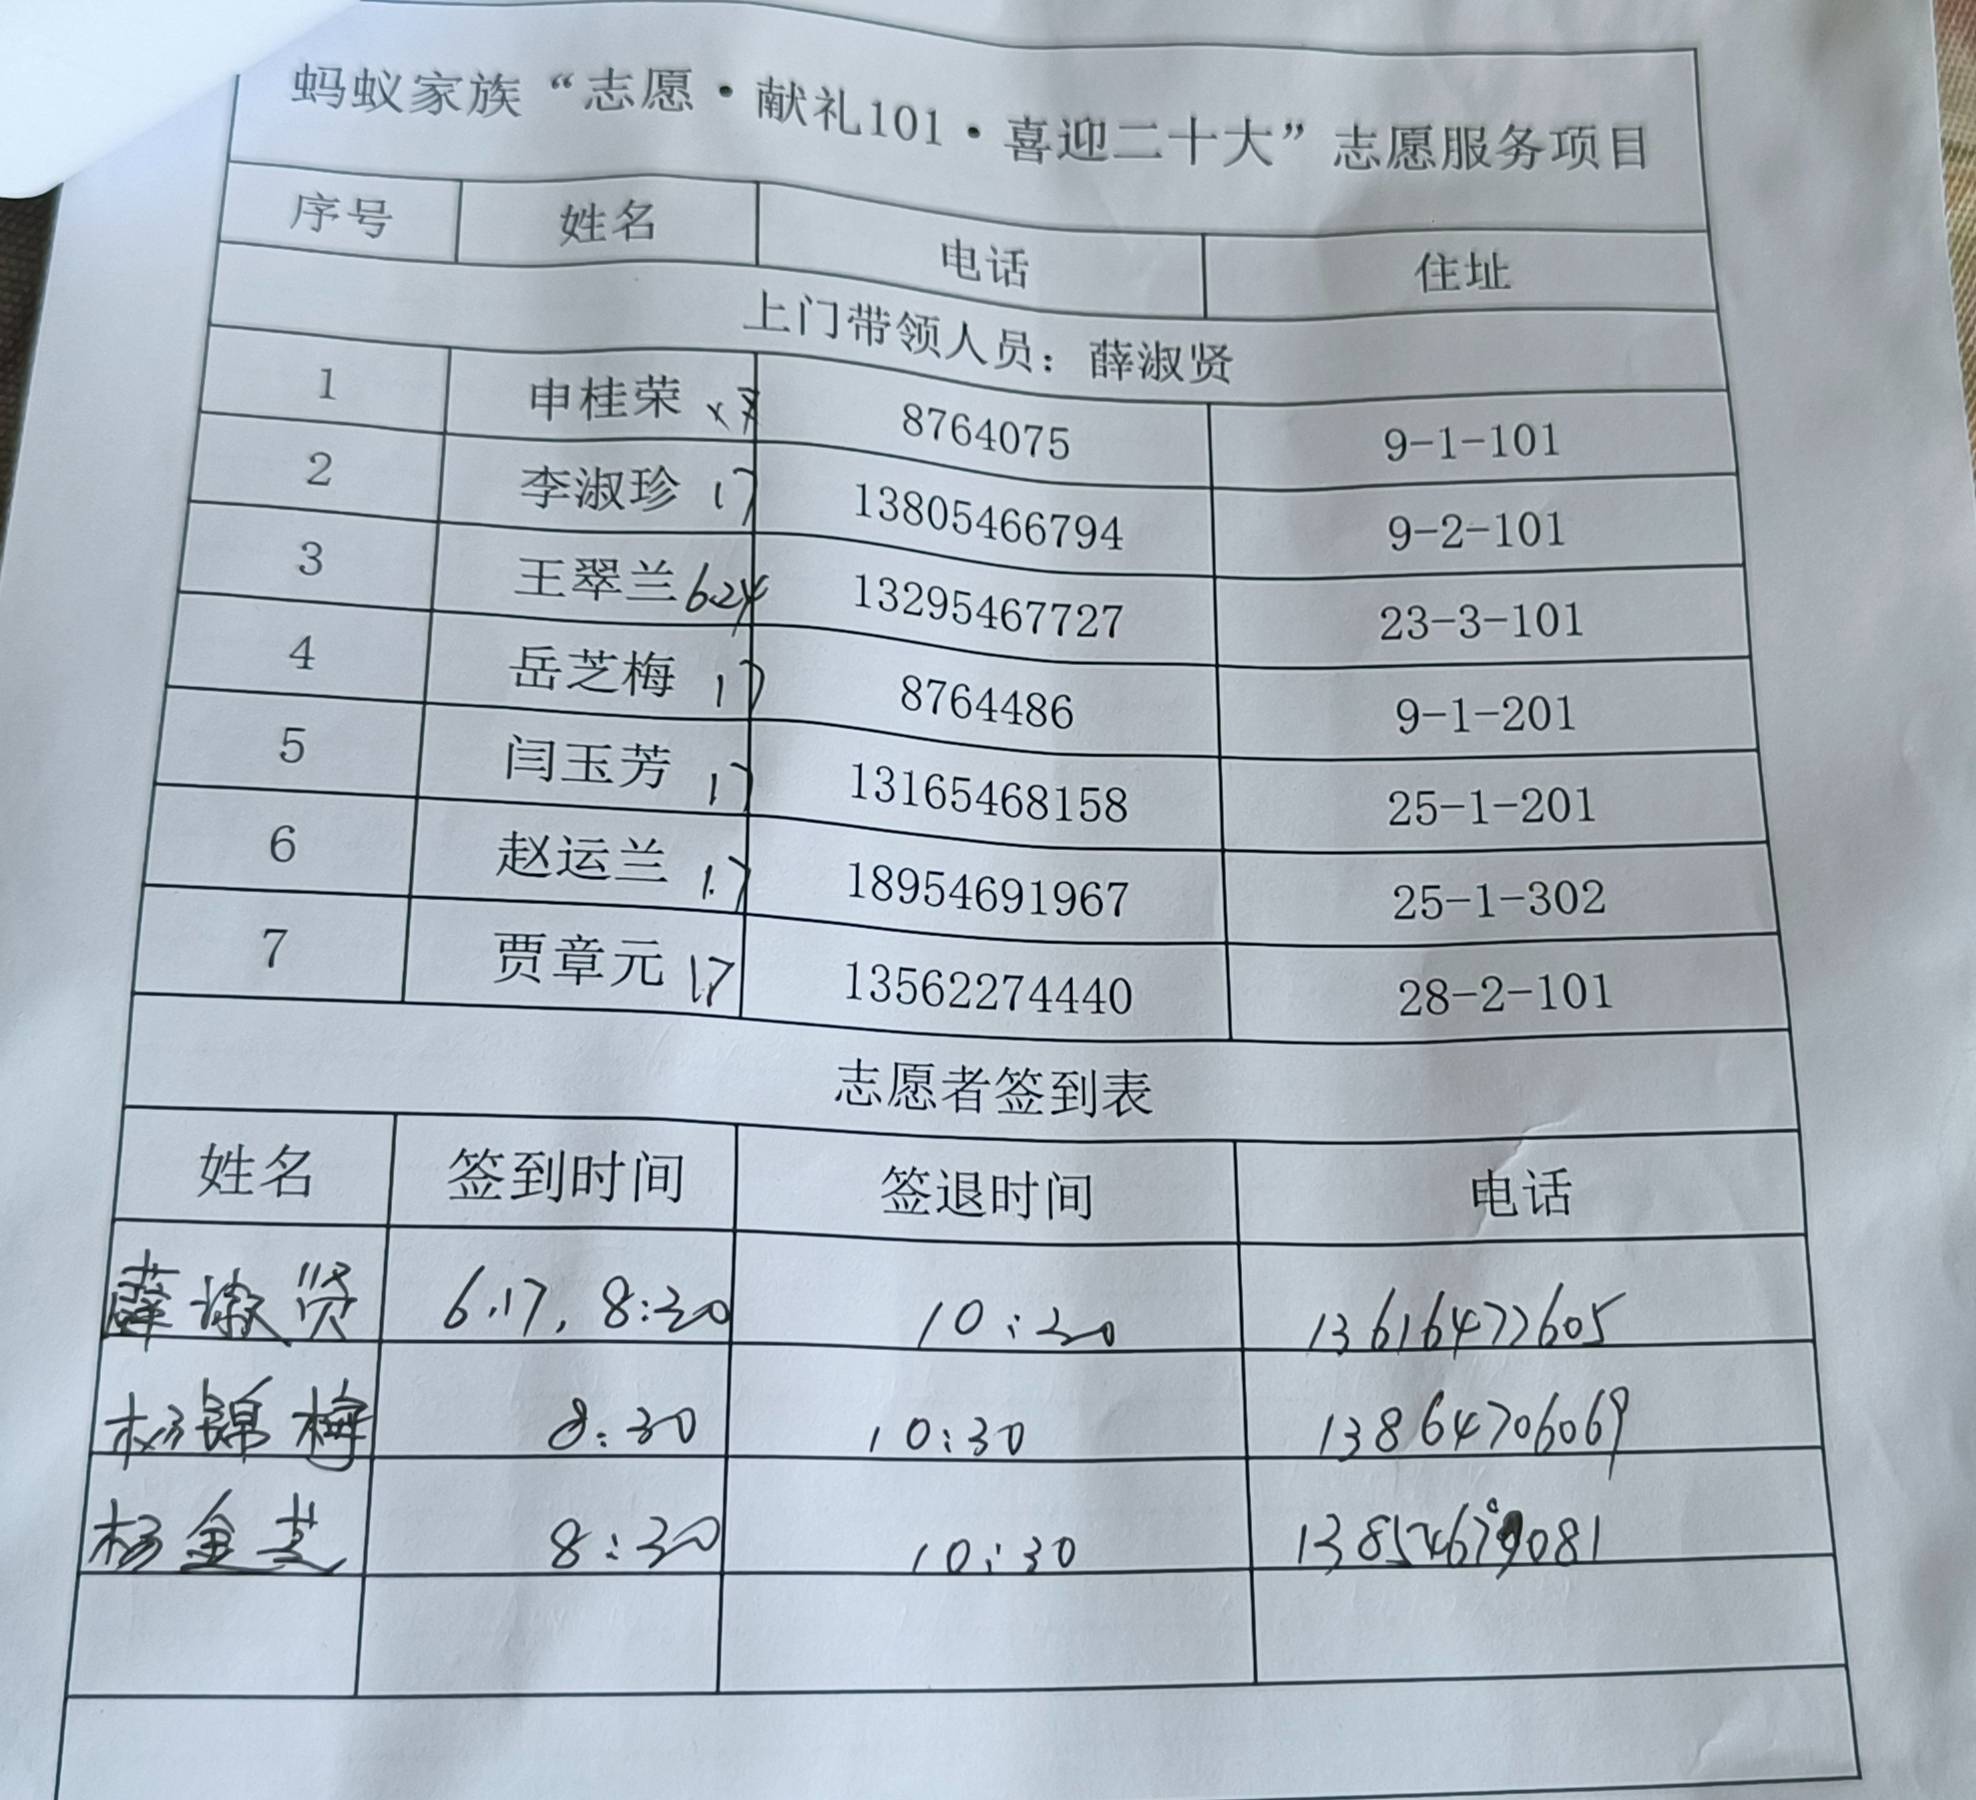 蚂蚁家族“志愿·献礼101·喜迎二十大”志愿服务项目
序号 姓名 电话 住址
上门带领人员：薛淑贤
1 申桂荣 8764075 9-1-101
2 李淑珍 17 13805466794 9-2-101
3 王翠兰 6.24 13295467727 23-3-101
4 岳芝梅 17 8764486 9-1-201
5 闫玉芳 17 13165468158 25-1-201
6 赵运兰 17 18954691967 25-1-302
7 贾章元 17 13562274440 28-2-101
志愿者签到表
姓名 签到时间 签退时间 电话
薛淑贤 6.17, 8:30 10:30 13616472605
杨锦梅 8:30 10:30 13864706069
杨金芝 8:30 10:30